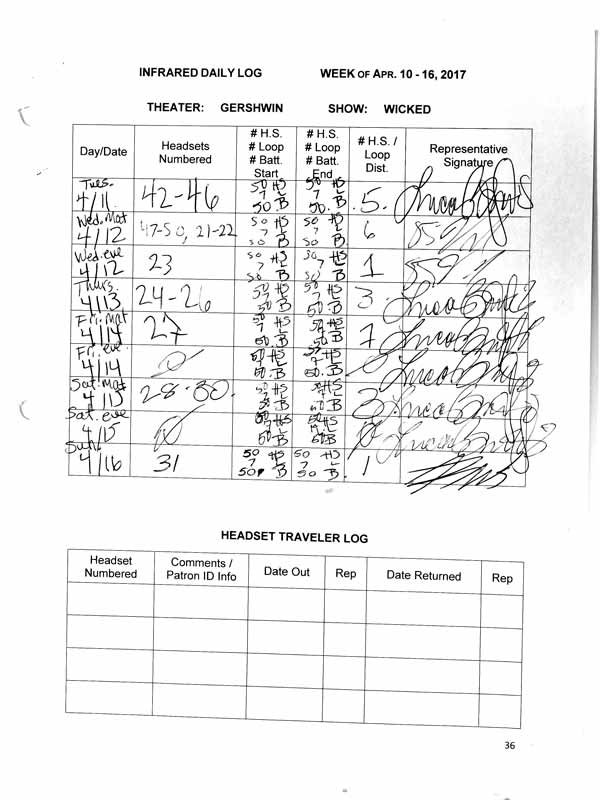 INFRARED DAILY LOG WEEK OF APR. 10 - 16, 2017
THEATER: GERSHWIN SHOW: WICKED
Day/Date
Headsets
Numbered
# H.S.
# Loop
# Batt.
Start
# H.S.
# Loop
# Batt.
End
# H.S. /
Loop
Dist.
Representative
Signature
Tues.
4/11
42-46
50 HS
7 L
50 B
50 HS
7 L
50 B
5
Wed. Mat
4/12
47-50, 21-22
50 HS
7 L
50 B
50 HS
7 L
50 B
6
Wed. eve
4/12
23
50 HS
7 L
50 B
50 HS
7 L
50 B
1
Thurs.
4/13
24-26
50 HS
7 L
50 B
50 HS
7 L
50 B
3
Fri. Mat
4/14
27
50 HS
7 L
50 B
50 HS
7 L
50 B
7
Fri. eve
4/14
0
50 HS
7 L
50 B
50 HS
7 L
50 B
Sat. Mat
4/15
28-30
50 HS
7 L
50 B
50 HS
7 L
50 B
3
Sat. eve
4/15
0
50 HS
7 L
50 B
50 HS
L
50 B
0
Sun.
4/16
31
50 HS
7 L
50 B
50 HS
7 L
50 B
1
HEADSET TRAVELER LOG
Headset
Numbered
Comments /
Patron ID Info
Date Out
Rep
Date Returned
Rep
36